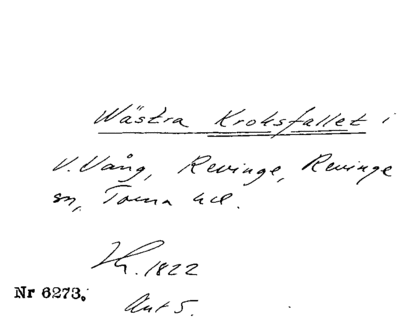 Wästra Kroksfallet i
V. Vång, Revinge, Revinge
sn, Torna hd.
1822
Nr 6273.
Akt 5.